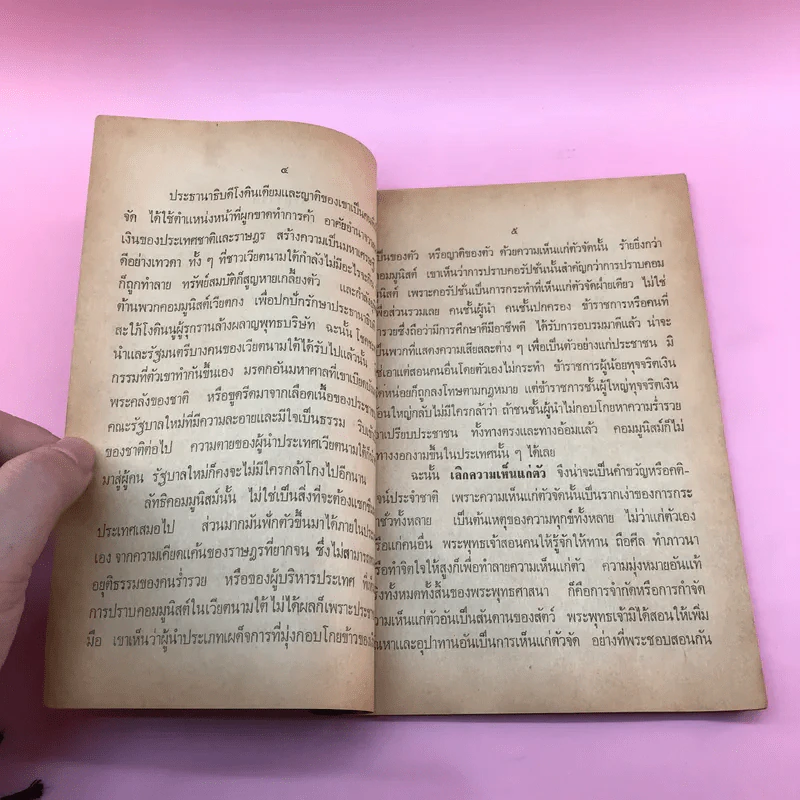 ๔
ประธานาธิบดีโงดินเดียมและญาติของเขาเป็นคน
จัด ได้ใช้ตำแหน่งหน้าที่ผูกขาดทำการค้า อาศัยอำนาจ
เงินของประเทศชาติและราษฎร สร้างความเป็นมหาเศรษฐี
ดีอย่างเทวดา ทั้ง ๆ ที่ชาวเวียตนามใต้กำลังไม่มีอะไรจะกิน
ก็ถูกทำลาย ทรัพย์สมบัติก็สูญหายเกลี้ยงตัว และกำลัง
ต้านพวกคอมมูนิสต์เวียตกง เพื่อปกปักรักษาประธานาธิบดี
สะใภ้โงดินนูผู้รุกรานล้างผลาญพุทธบริษัท ฉะนั้น
นำและรัฐมนตรีบางคนของเวียตนามใต้ได้รับไปแล้วนั้น
กรรมที่ตัวเขาทำกันขึ้นเอง มรดกอันมหาศาลที่เขาเบียดบัง
พระคลังของชาติ หรือขูดรีดมาจากเลือดเนื้อของประชาชน
คณะรัฐบาลใหม่ที่มีความละอายและมีใจเป็นธรรม
ของชาติต่อไป ความตายของผู้นำประเทศเวียตนามใต้ก็
มาสู่ผู้คน รัฐบาลใหม่ก็คงจะไม่มีใครกล้าโกงไปอีกนาน
ลัทธิคอมมูนิสม์นั้น ไม่ใช่เป็นสิ่งที่จะต้องแซกซึม
ประเทศเสมอไป ส่วนมากมันฟักตัวขึ้นมาได้ภายใน
เอง จากความเคียดแค้นของราษฎรที่ยากจน ซึ่งไม่สามารถ
อยุติธรรมของคนร่ำรวย หรือของผู้บริหารประเทศ
การปราบคอมมูนิสต์ในเวียตนามใต้ ไม่ได้ผลก็เพราะ
มือ เขาเห็นว่าผู้นำประเภทเผด็จการที่มุ่งกอบโกยข้าวของ
๕
เป็นของตัว หรือญาติของตัว ด้วยความเห็นแก่ตัวจัดนั้น ร้ายยิ่งกว่า
คอมมูนิสต์ เขาเห็นว่าการปราบคอรัปชั่นนั้นสำคัญกว่าการปราบคอม
มูนิสต์ เพราะคอรัปชั่นเป็นการกระทำที่เห็นแก่ตัวจัดฝ่ายเดียว ไม่ใช่
เพื่อส่วนรวมเลย คนชั้นผู้นำ คนชั้นปกครอง ข้าราชการหรือคนที่
ร่ำรวยซึ่งถือว่ามีการศึกษาดีมีอาชีพดี ได้รับการอบรมมาดีแล้ว น่าจะ
เป็นพวกที่แสดงความเสียสละต่าง ๆ เพื่อเป็นตัวอย่างแก่ประชาชน มิ
ใช่เอาแต่สอนคนอื่นโดยตัวเองไม่กระทำ ข้าราชการผู้น้อยทุจจริตเงิน
นิดหน่อยก็ถูกลงโทษตามกฎหมาย แต่ข้าราชการชั้นผู้ใหญ่ทุจจริตเงิน
ก้อนใหญ่กลับไม่มีใครกล้าว่า ถ้าชนชั้นผู้นำไม่กอบโกยหาความร่ำรวย
เอาเปรียบประชาชน ทั้งทางตรงและทางอ้อมแล้ว คอมมูนิสม์ก็ไม่
ทางงอกงามขึ้นในประเทศนั้น ๆ ได้เลย
ฉะนั้น เลิกความเห็นแก่ตัว จึงน่าจะเป็นคำขวัญหรือคติ-
พจน์ประจำชาติ เพราะความเห็นแก่ตัวจัดนั้นเป็นรากเง่าของการกระ
ทำชั่วทั้งหลาย เป็นต้นเหตุของความทุกข์ทั้งหลาย ไม่ว่าแก่ตัวเอง
หรือแก่คนอื่น พระพุทธเจ้าสอนคนให้รู้จักให้ทาน ถือศีล ทำภาวนา
หรือทำจิตใจให้สูงก็เพื่อทำลายความเห็นแก่ตัว ความมุ่งหมายอันแท้
จริงทั้งหมดทั้งสิ้นของพระพุทธศาสนา ก็คือการจำกัดหรือการกำจัด
ความเห็นแก่ตัวอันเป็นสันดานของสัตว์ พระพุทธเจ้ามิได้สอนให้เพิ่ม
ตัณหาและอุปาทานอันเป็นการเห็นแก่ตัวจัด อย่างที่พระชอบสอนกัน